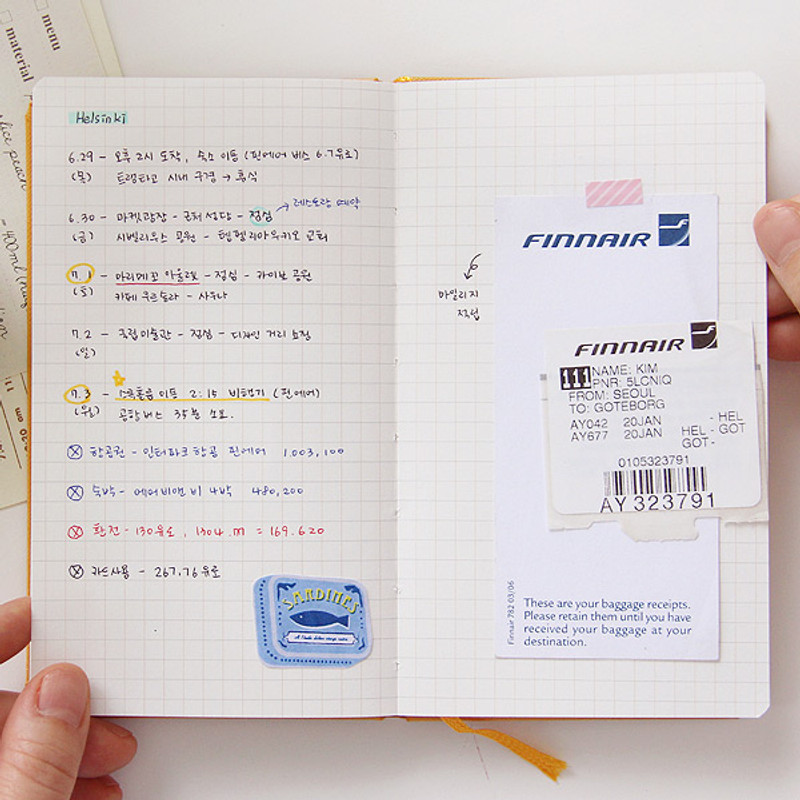 menu
material
slice peach
= 400ml
Helsinki
6.29 - 오후 2시 도착, 숙소 이동 (핀에어 버스 6.7유로)
(목) 트램타고 시내 구경 → 휴식
6.30 - 마켓광장 - 근처 성당 - 점심 → 레스토랑 예약
(금) 시벨리우스 공원 - 템펠리아우키오 교회
7.1 - 마리메꼬 아울렛 - 점심 - 카이보 공원
(토) 카페 우르술라 - 사우나
7.2 - 국립미술관 - 점심 - 디자인 거리 쇼핑
(일)
7.3 - 스톡홀름 이동 2:15 비행기 (핀에어)
(월) 공항버스 35분 소요.
항공권 - 인터파크항공 핀에어 1.003,100
숙박 - 에어비앤비 4박 480,200
환전 - 130유로, 1304.m = 169.620
카드사용 - 267.76유로
SARDINES
마일리지
적립
FINNAIR
FINNAIR
111 NAME: KIM
PNR: 5LCNIQ
FROM: SEOUL
TO: GOTEBORG
AY042 20JAN - HEL
AY677 20JAN HEL - GOT
GOT-
0105323791
AY 323791
Finnair 782 03/06
These are your baggage receipts.
Please retain them until you have
received your baggage at your
destination.